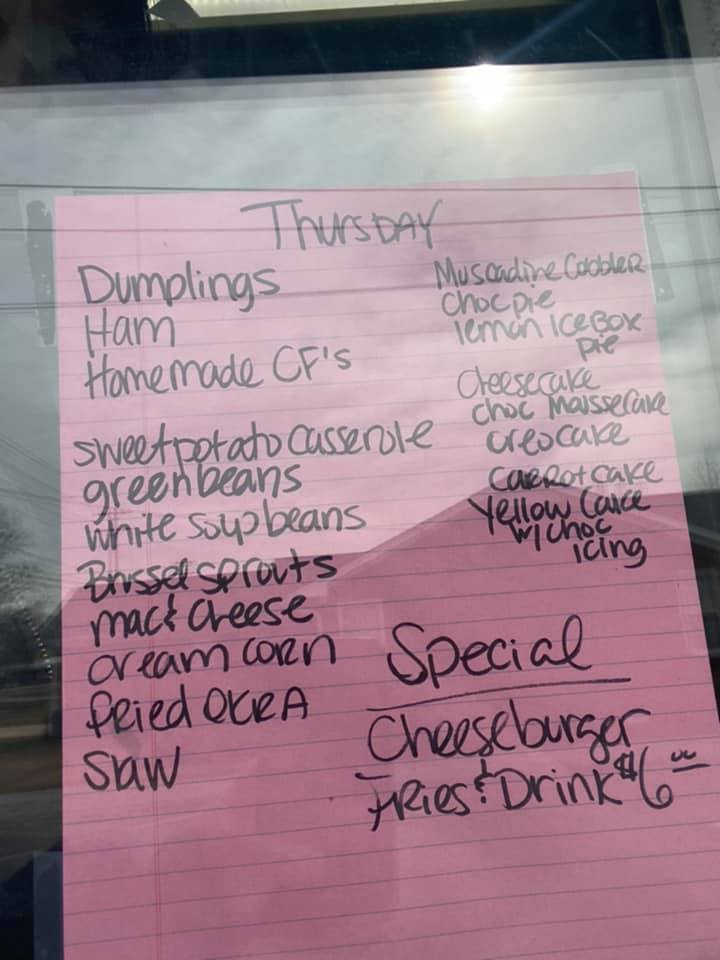 Thursday
Dumplings
Ham
Homemade CF's
sweet potato casserole
green beans
white soup beans
Brussel sprouts
mac & cheese
cream corn
fried OKRA
Slaw
Muscadine Cobbler
Choc pie
lemon Ice Box
pie
Cheesecake
choc Mousse Cake
oreo cake
Carrot cake
Yellow Cake
w/ choc
icing
Special
Cheeseburger
Fries & Drink $6.00